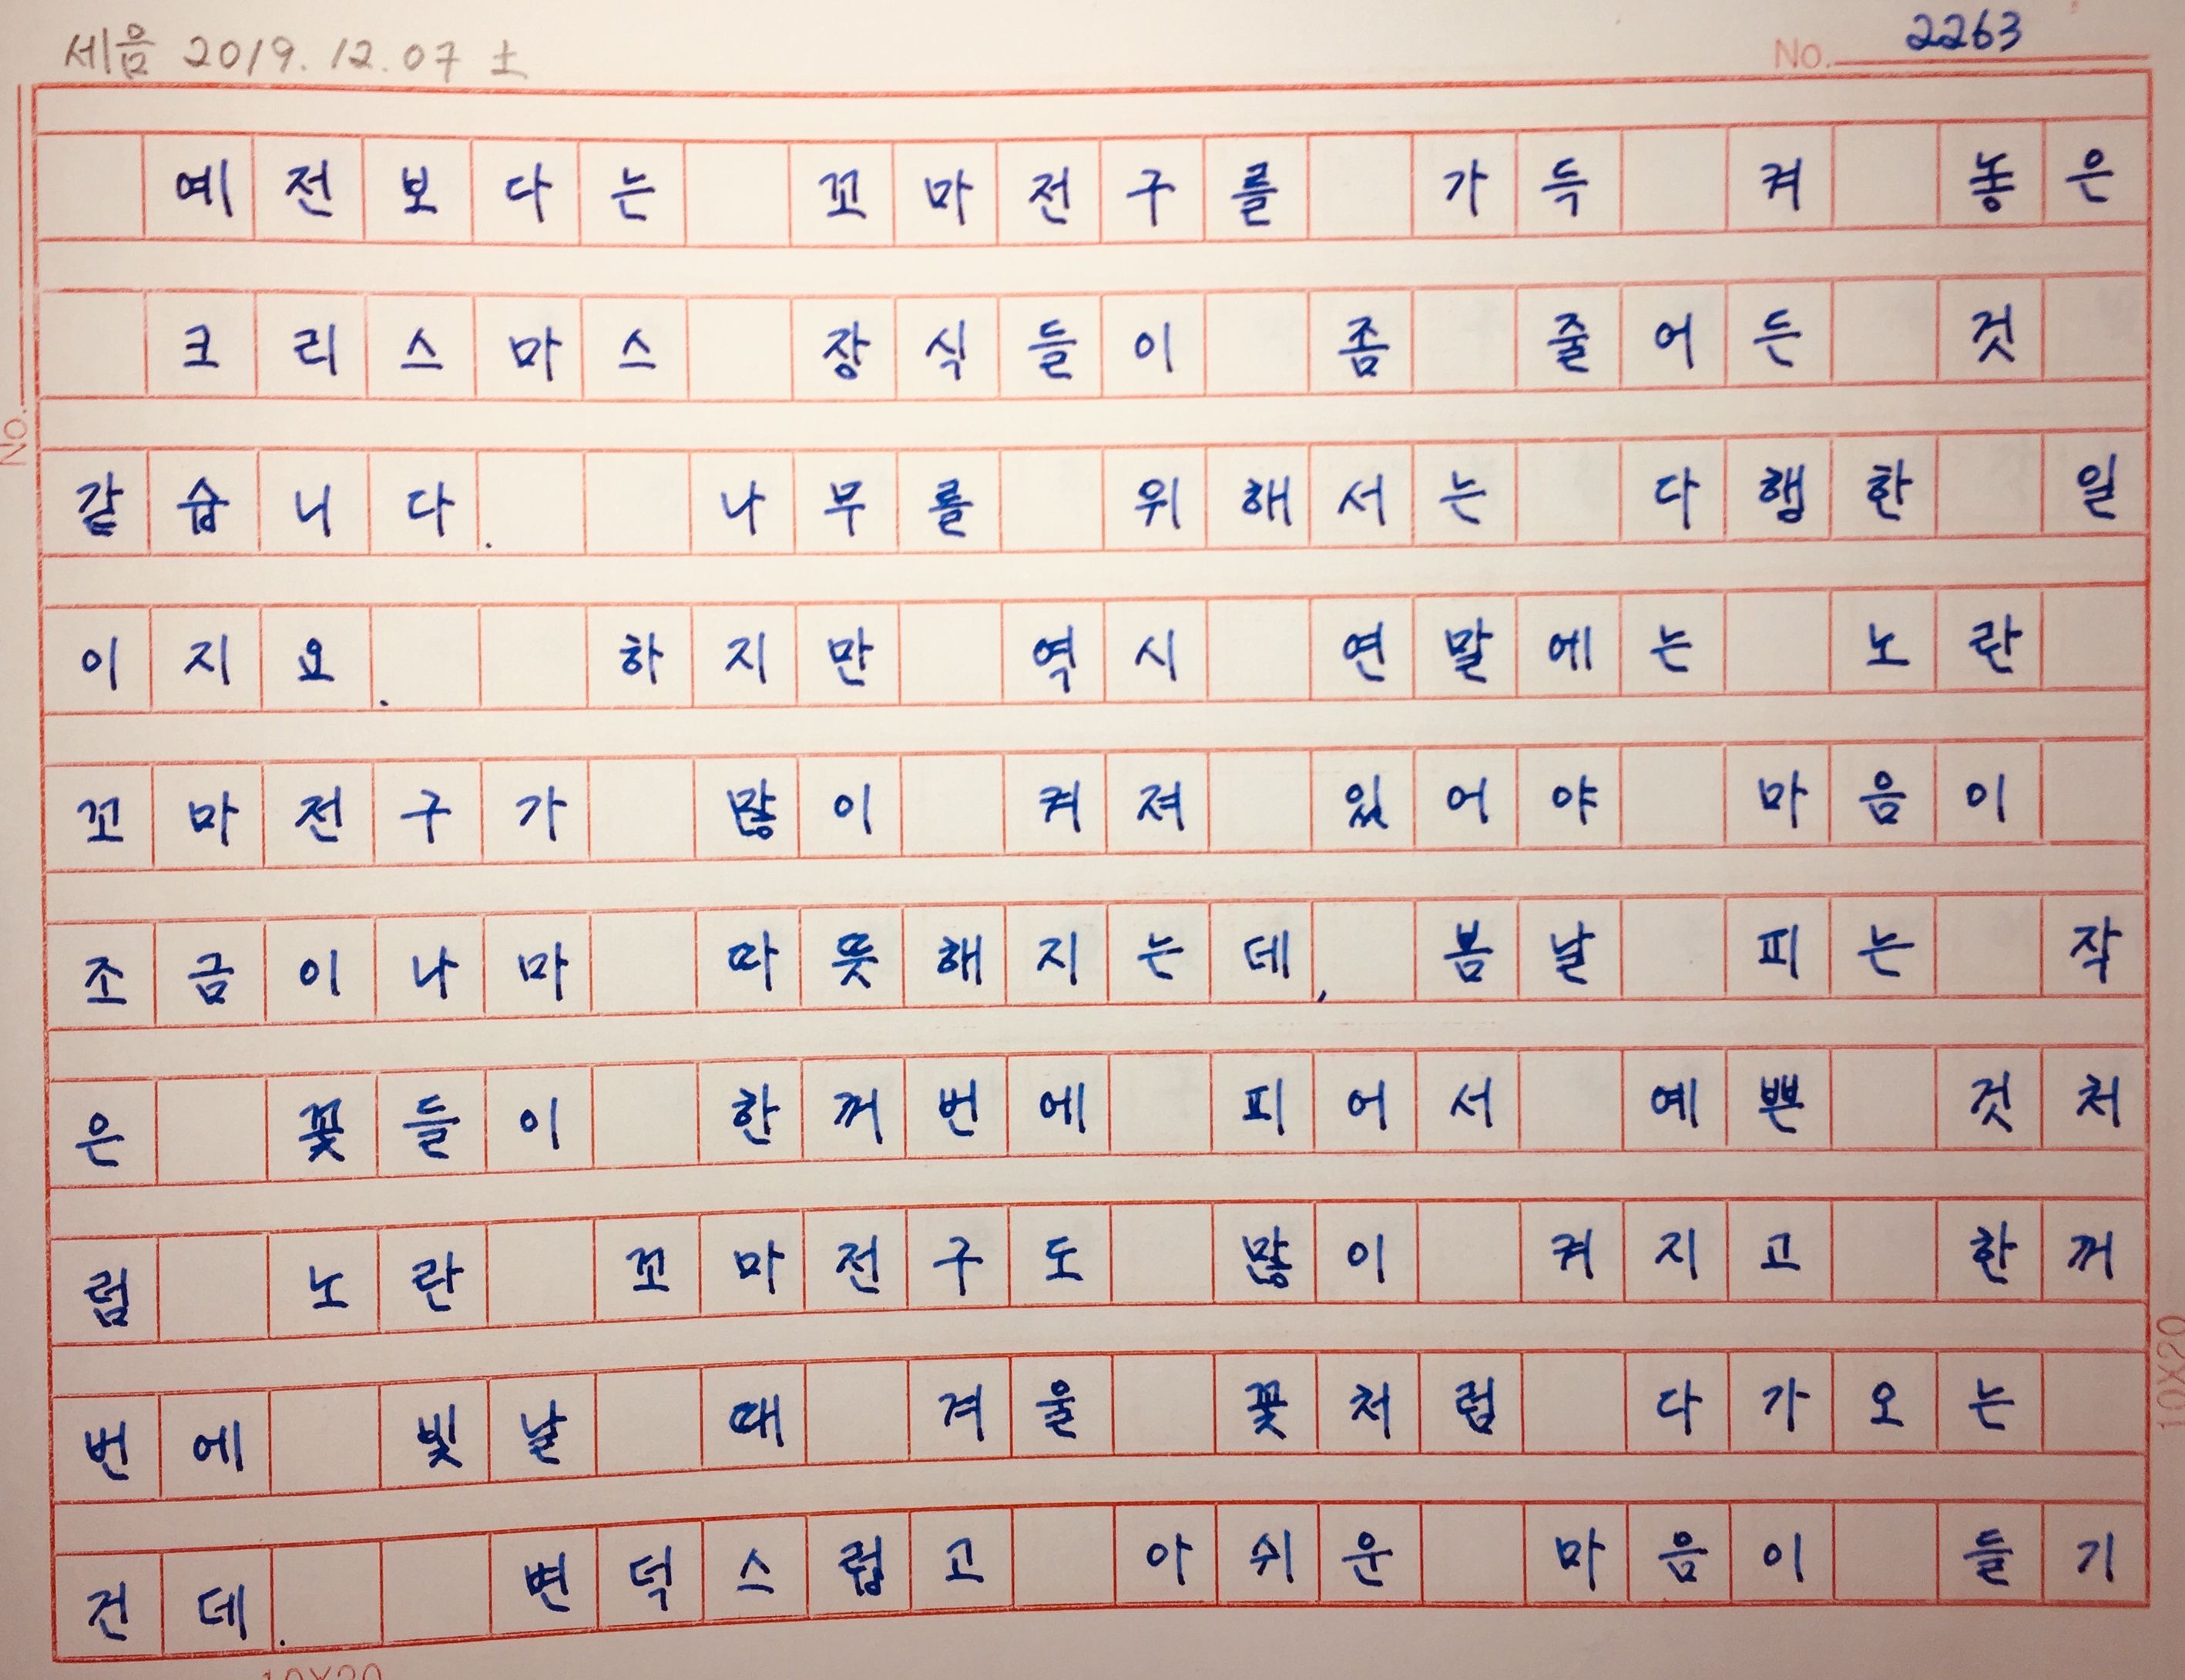 세음 2019. 12. 07 土
No. 2263
예전보다는 꼬마전구를 가득 켜 놓은
크리스마스 장식들이 좀 줄어든 것
같습니다. 나무를 위해서는 다행한 일
No.
이지요. 하지만 역시 연말에는 노란
꼬마전구가 많이 켜져 있어야 마음이
조금이나마 따뜻해지는데, 봄날 피는 작
은 꽃들이 한꺼번에 피어서 예쁜 것처
럼 노란 꼬마전구도 많이 켜지고 한꺼
번에 빛날 때 겨울 꽃처럼 다가오는
건데. 변덕스럽고 아쉬운 마음이 들기
10X20
10X20